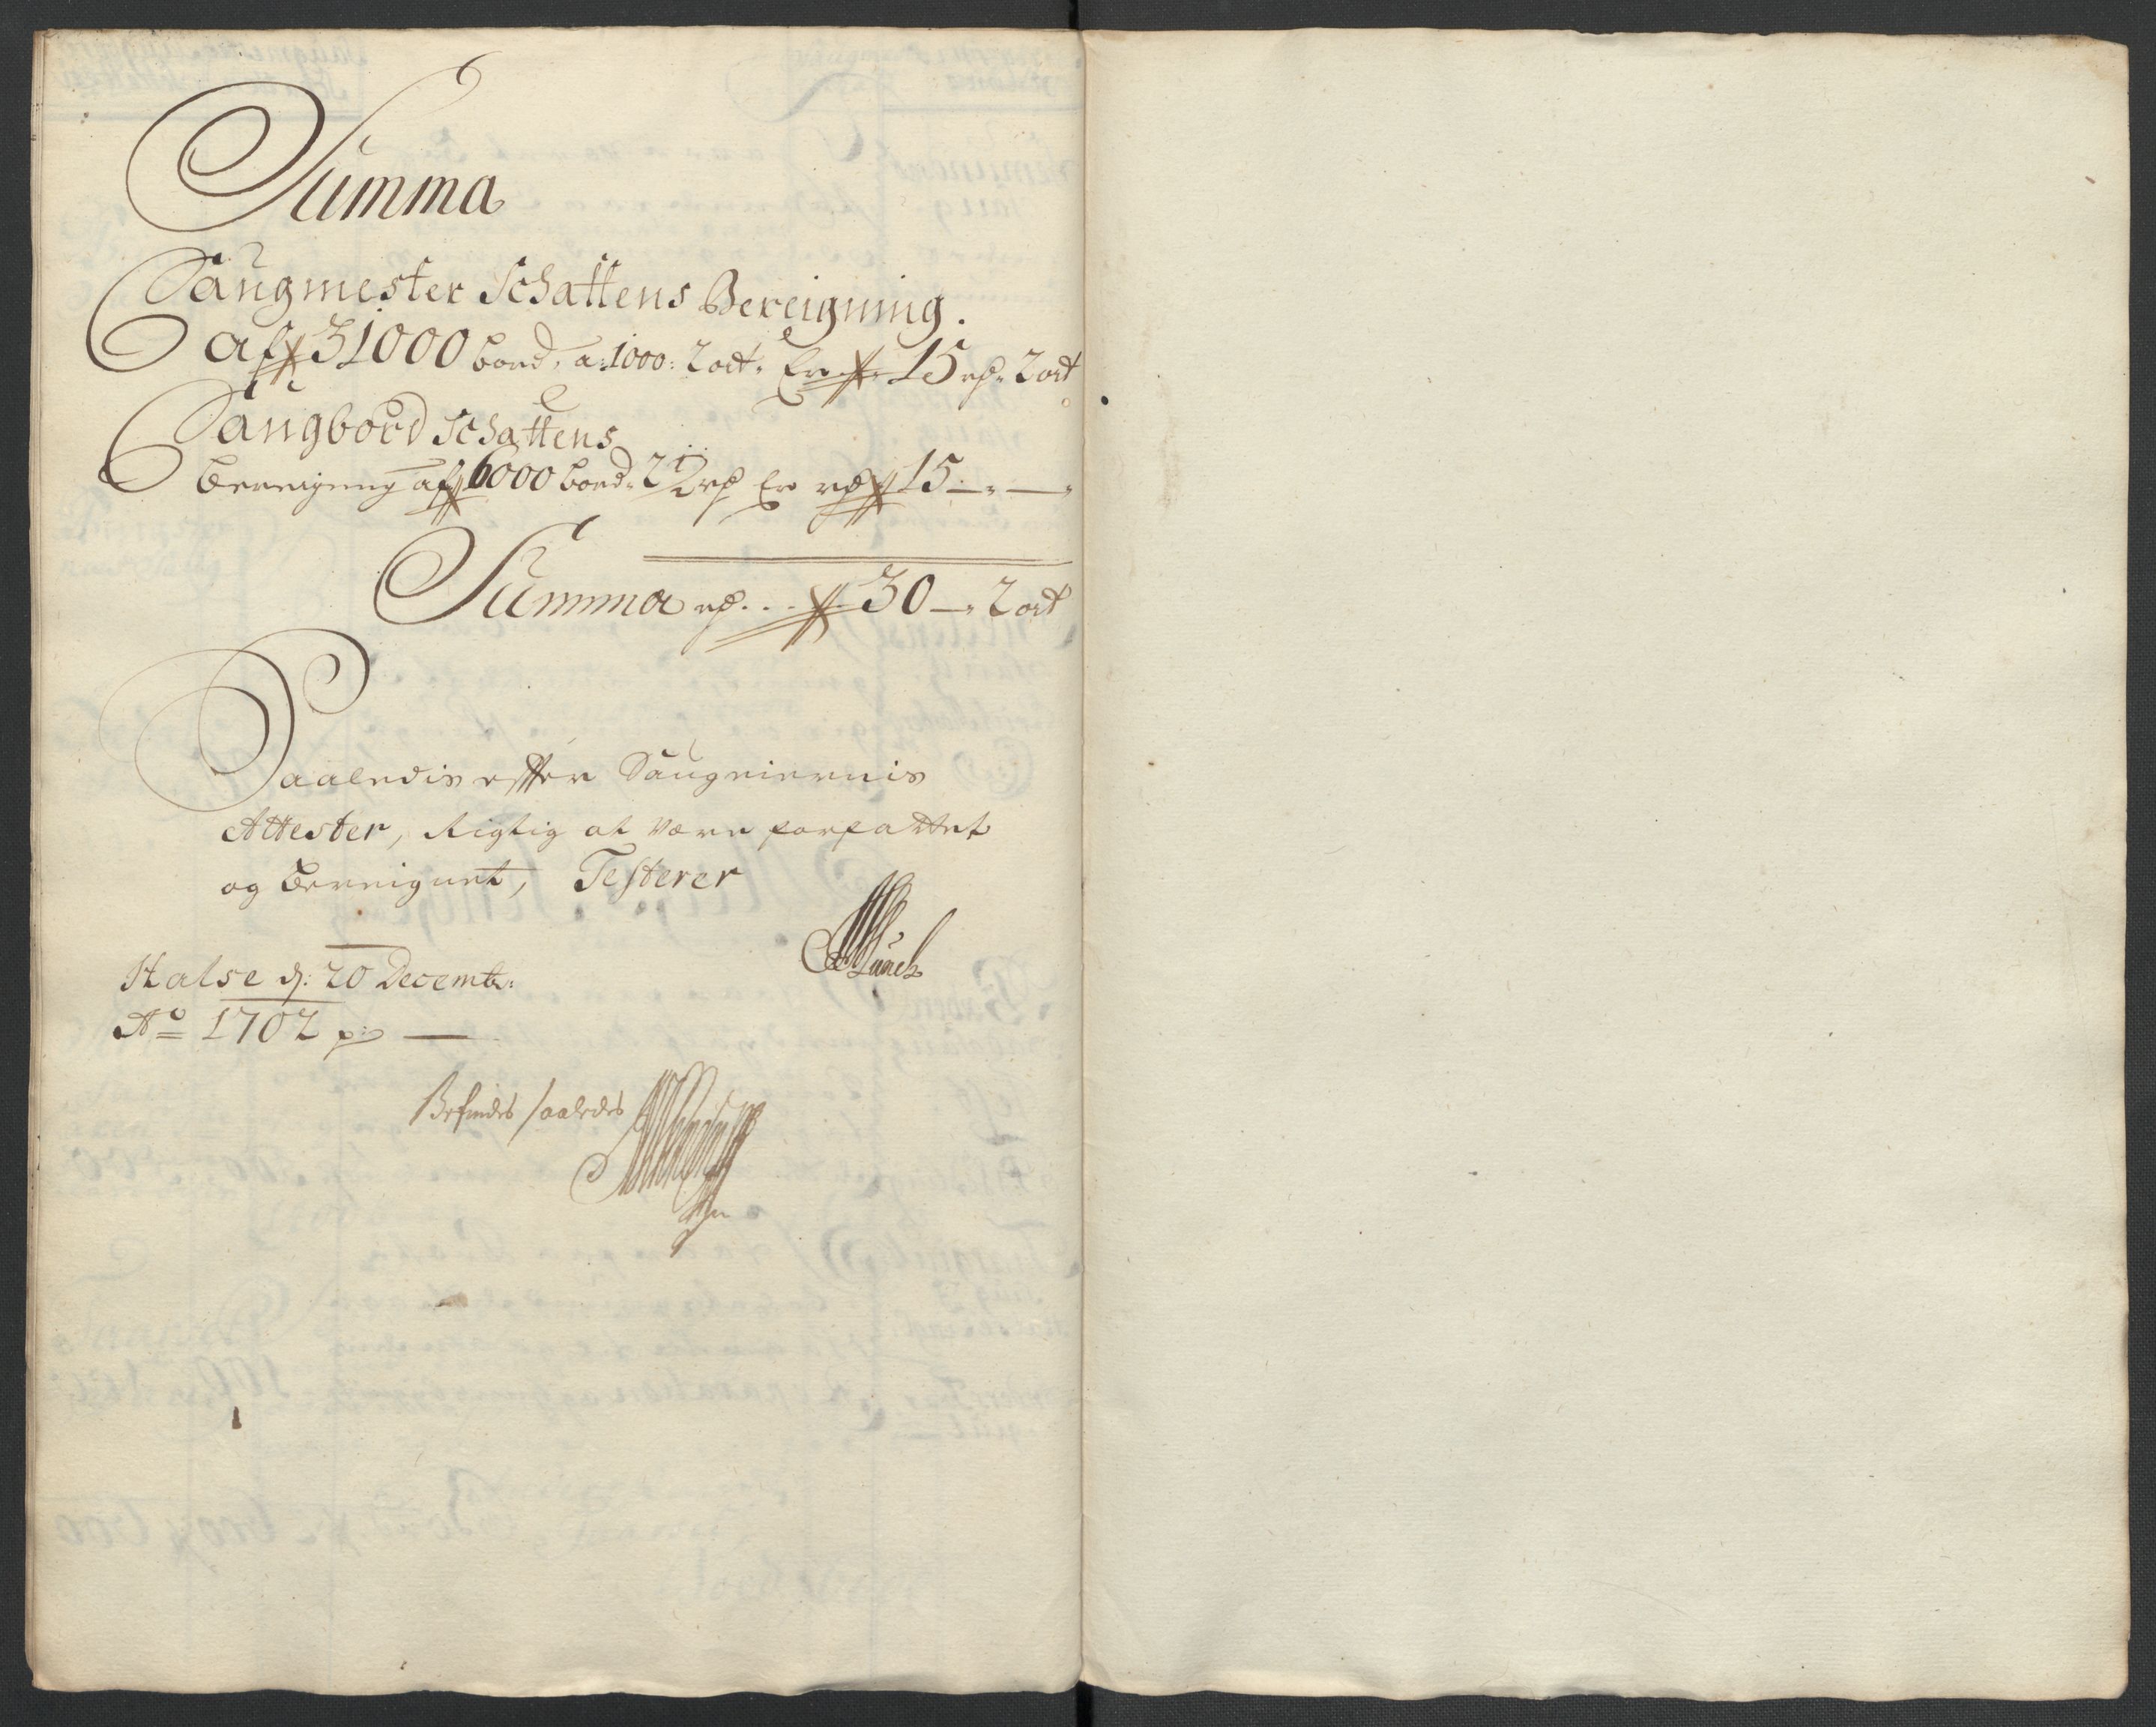 Summa
Saugmester Schattens Bereigning.
aff 31000 bord, a: 1000: 2 ort. Er 15 rd. 2 ort
Saugbord Schattens
Bereigning aff 6000 bord. 2½ rd Er rd 15 — " — "
Summa rd. . . 30 — " 2 ort
Saaledis effter Saugeiernis
Attester, Rigtig at være forfattet
og bereignet, Testerer
Munch
Halse d: 20 Decembr:
Ao 1702
Befindes saaledes